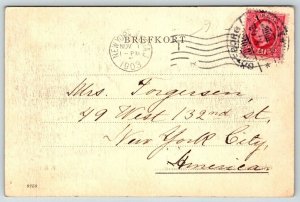 BREFKORT
NOV
1903
Mrs. Torgersen,
49 West 132nd st.
New York City,
America.